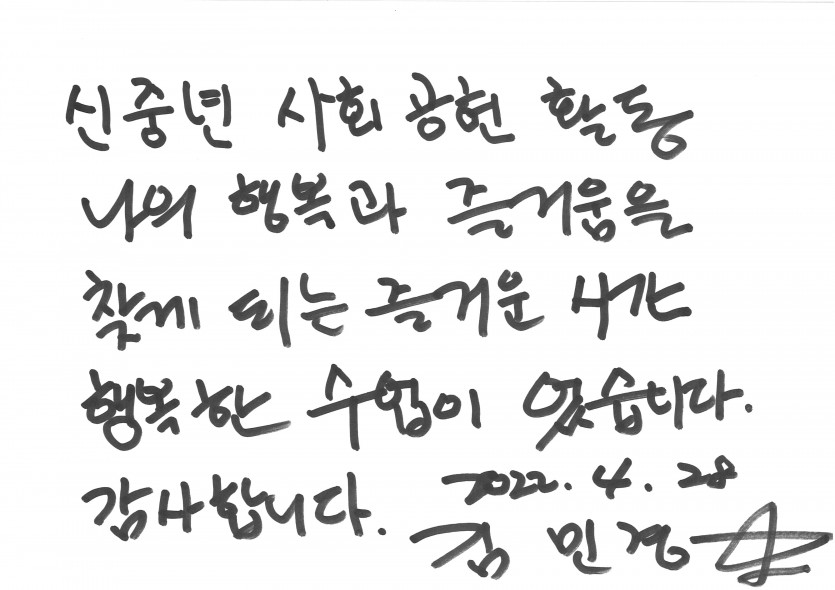 신중년 사회 공헌 활동
나의 행복과 즐거움을
찾게 되는 즐거운 시간
행복한 수업이 었습니다.
감사합니다.
2022. 4. 28
김민경